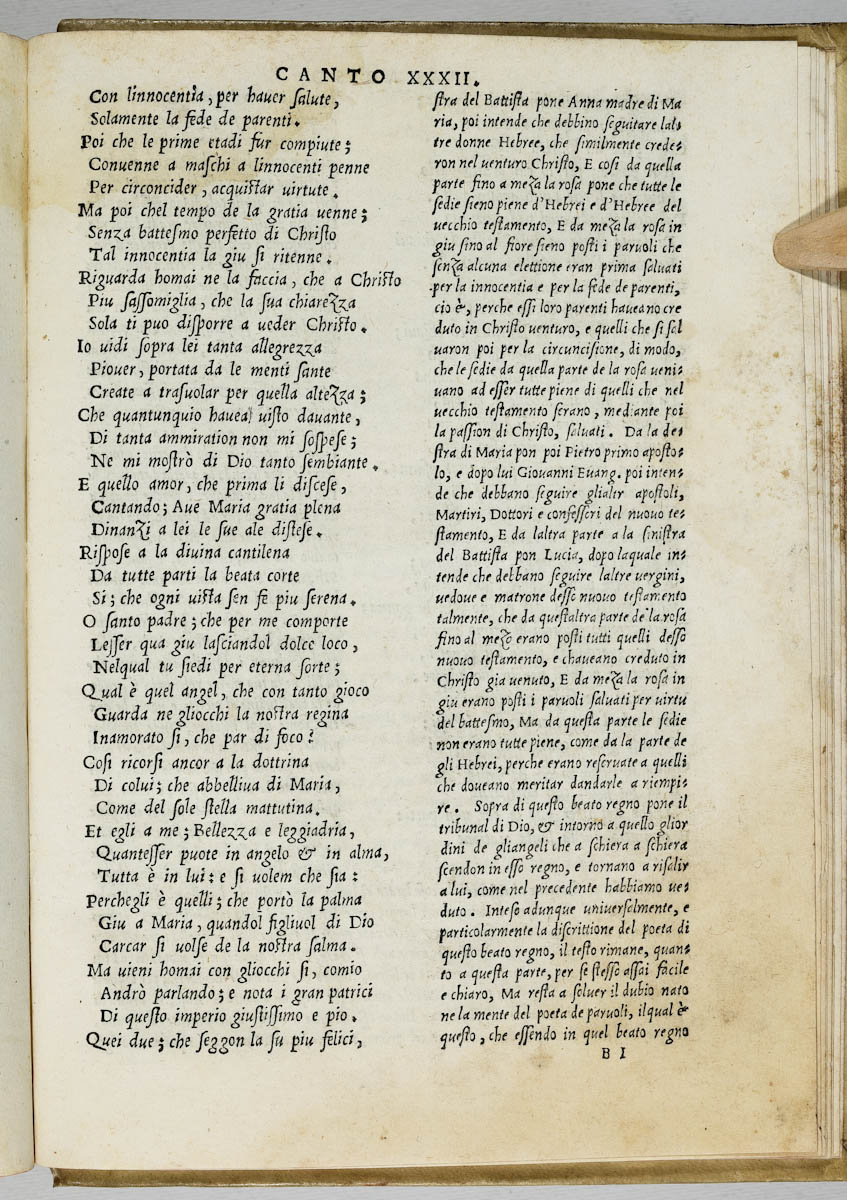 CANTO XXXII.
Con linnocentia, per hauer salute,
Solamente la fede de parenti.
Poi che le prime etadi fur compiute;
Conuenne a maschi a linnocenti penne
Per circoncider, acquistar uirtute.
Ma poi chel tempo de la gratia uenne;
Senza battesmo perfetto di Christo
Tal innocentia la giu si ritenne.
Riguarda homai ne la faccia, che a Christo
Piu sassomiglia, che la sua chiarezza
Sola ti puo disporre a ueder Christo.
Io uidi sopra lei tanta allegrezza
Piouer, portata da le menti sante
Create a trasuolar per quella altezza;
Che quantunquio hauea uisto dauante,
Di tanta ammiration non mi sospese;
Ne mi mostrò di Dio tanto sembiante.
E quello amor, che prima li discese,
Cantando; Aue Maria gratia plena
Dinanzi a lei le sue ale distese.
Rispose a la diuina cantilena
Da tutte parti la beata corte
Si; che ogni uista sen fe piu serena.
O santo padre; che per me comporte
Lesser qua giu lasciandol dolce loco,
Nelqual tu siedi per eterna sorte;
Qual è quel angel, che con tanto gioco
Guarda ne gliocchi la nostra regina
Inamorato si, che par di foco?
Cosi ricorsi ancor a la dottrina
Di colui; che abbelliua di Maria,
Come del sole stella mattutina.
Et egli a me; Bellezza e leggiadria,
Quantesser puote in angelo & in alma,
Tutta è in lui: e si uolem che sia:
Perchegli è quelli; che portò la palma
Giu a Maria, quandol figliuol di Dio
Carcar si uolse de la nostra salma.
Ma uieni homai con gliocchi si, comio
Andrò parlando; e nota i gran patrici
Di questo imperio giustissimo e pio.
Quei due; che seggon la su piu felici,
stra del Battista pone Anna madre di Ma
ria, poi intende che debbino seguitare lal-
tre donne Hebree, che similmente crede-
ron nel uenturo Christo, E cosi da quella
parte fino a meza la rosa pone che tutte le
sedie sieno piene d'Hebrei e d'Hebree del
uecchio testamento, E da meza la rosa in
giu sino al fiore sieno posti i paruoli che
senza alcuna elettione eran prima saluati
per la innocentia e per la fede de parenti,
cio è, perche essi loro parenti haueano cre
duto in Christo uenturo, e quelli che si sal
uaron poi per la circuncisione, di modo,
che le sedie da quella parte de la rosa ueni-
uano ad esser tutte piene di quelli che nel
uecchio testamento serano, mediante poi
la passion di Christo, saluati. Da la de-
stra di Maria pon poi Pietro primo aposto-
lo, e dopo lui Giouanni Euang. poi inten-
de che debbano seguire glialtr apostoli,
Martiri, Dottori e confessori del nuouo te-
stamento, E da laltra parte a la sinistra
del Battista pon Lucia, dopo laquale in-
tende che debbano seguire laltre uergini,
uedoue e matrone desso nuouo testamento
talmente, che da questaltra parte de la rosa
fino al mezo erano posti tutti quelli desso
nuouo testamento, e chaueano creduto in
Christo gia uenuto, E da meza la rosa in
giu erano posti i paruoli saluati per uirtu
del battesmo, Ma da questa parte le sedie
non erano tutte piene, come da la parte de
gli Hebrei, perche erano reseruate a quelli
che doueano meritar dandarle a riempi-
re. Sopra di questo beato regno pone il
tribunal di Dio, & intorno a quello glior
dini de gliangeli che a schiera a schiera
scendon in esso regno, e tornano a risalir
a lui, come nel precedente habbiamo ue-
duto. Inteso adunque uniuersalmente, e
particolarmente la discrittione del poeta di
questo beato regno, il testo rimane, quan-
to a questa parte, per se stesso assai facile
e chiaro, Ma resta a soluer il dubio nato
ne la mente del poeta de paruoli, ilqual è
questo, che essendo in quel beato regno
B I